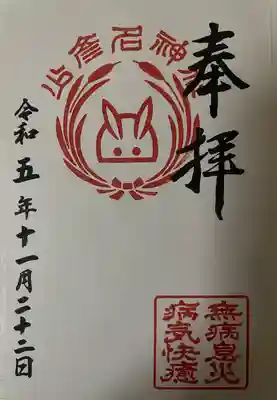 奉拝
少彦名神社
無病息災
病気快癒
令和五年十一月二十二日